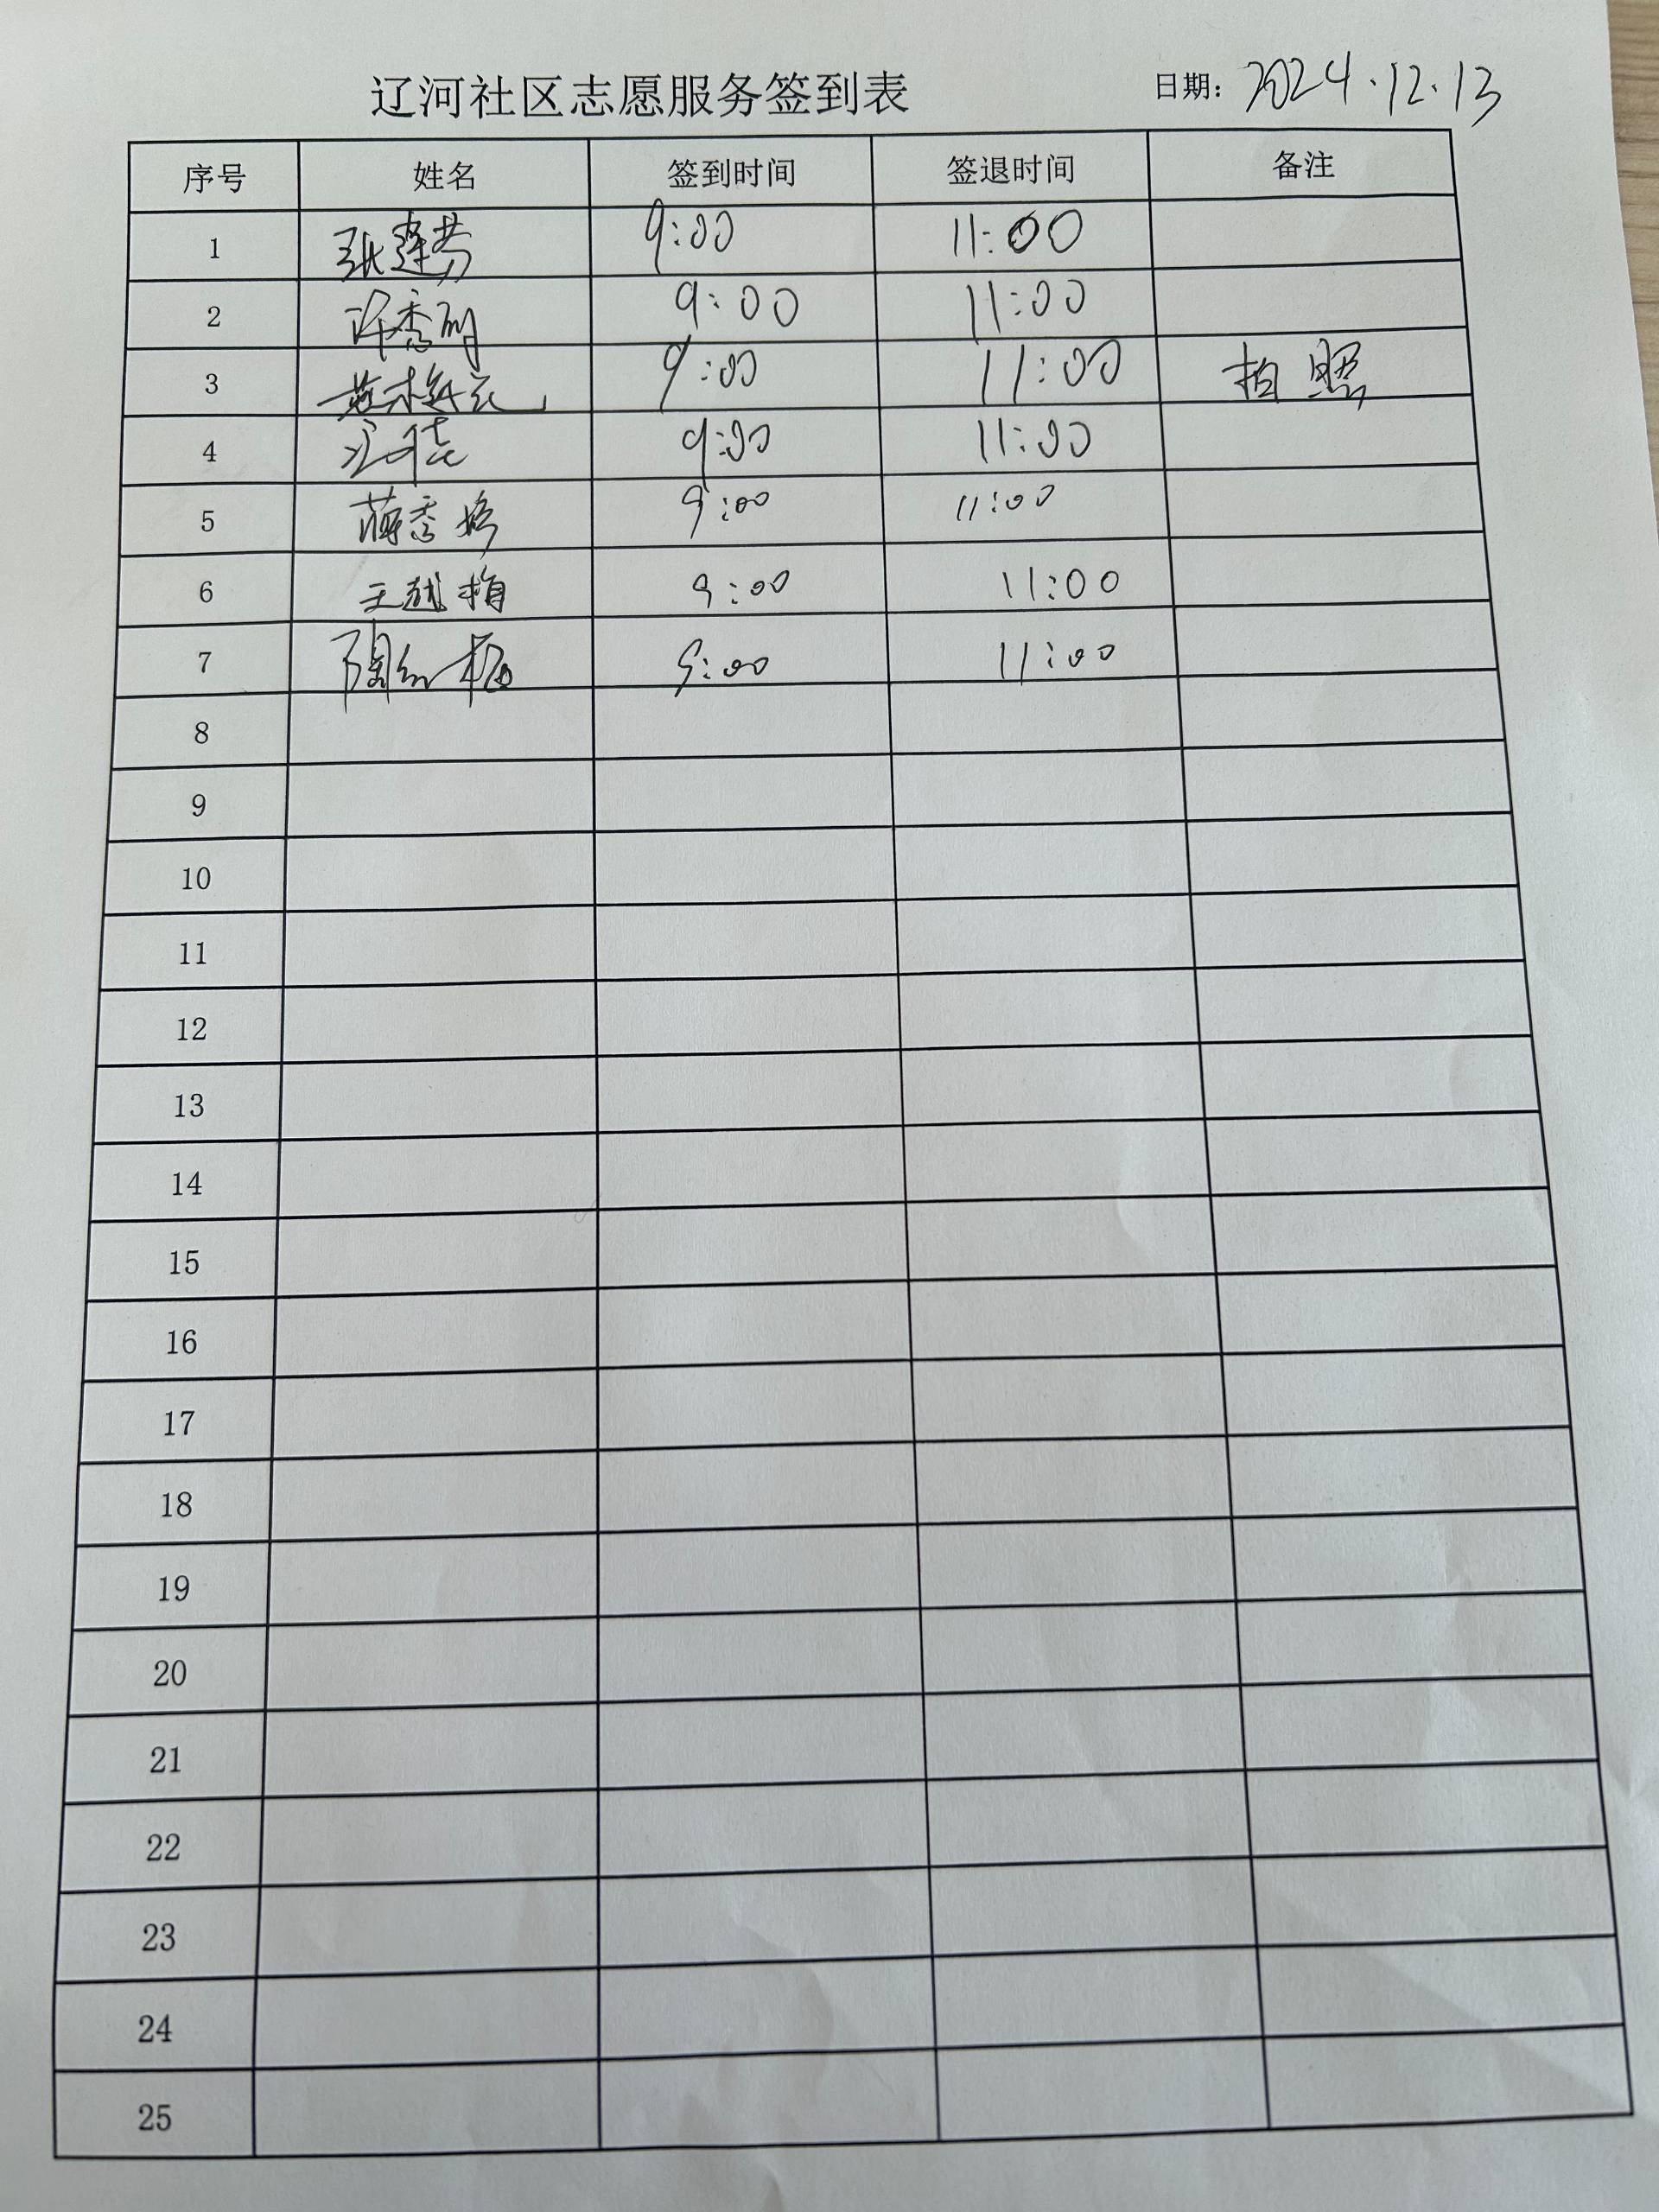 辽河社区志愿服务签到表 日期: 2024.12.13
序号 姓名 签到时间 签退时间 备注
1 张莲芳 9:00 11:00
2 许秀 9:00 11:00
3 9:00 11:00 拍照
4 9:00 11:00
5 蒋秀婷 9:00 11:00
6 王 梅 9:00 11:00
7 陶红梅 9:00 11:00
8
9
10
11
12
13
14
15
16
17
18
19
20
21
22
23
24
25